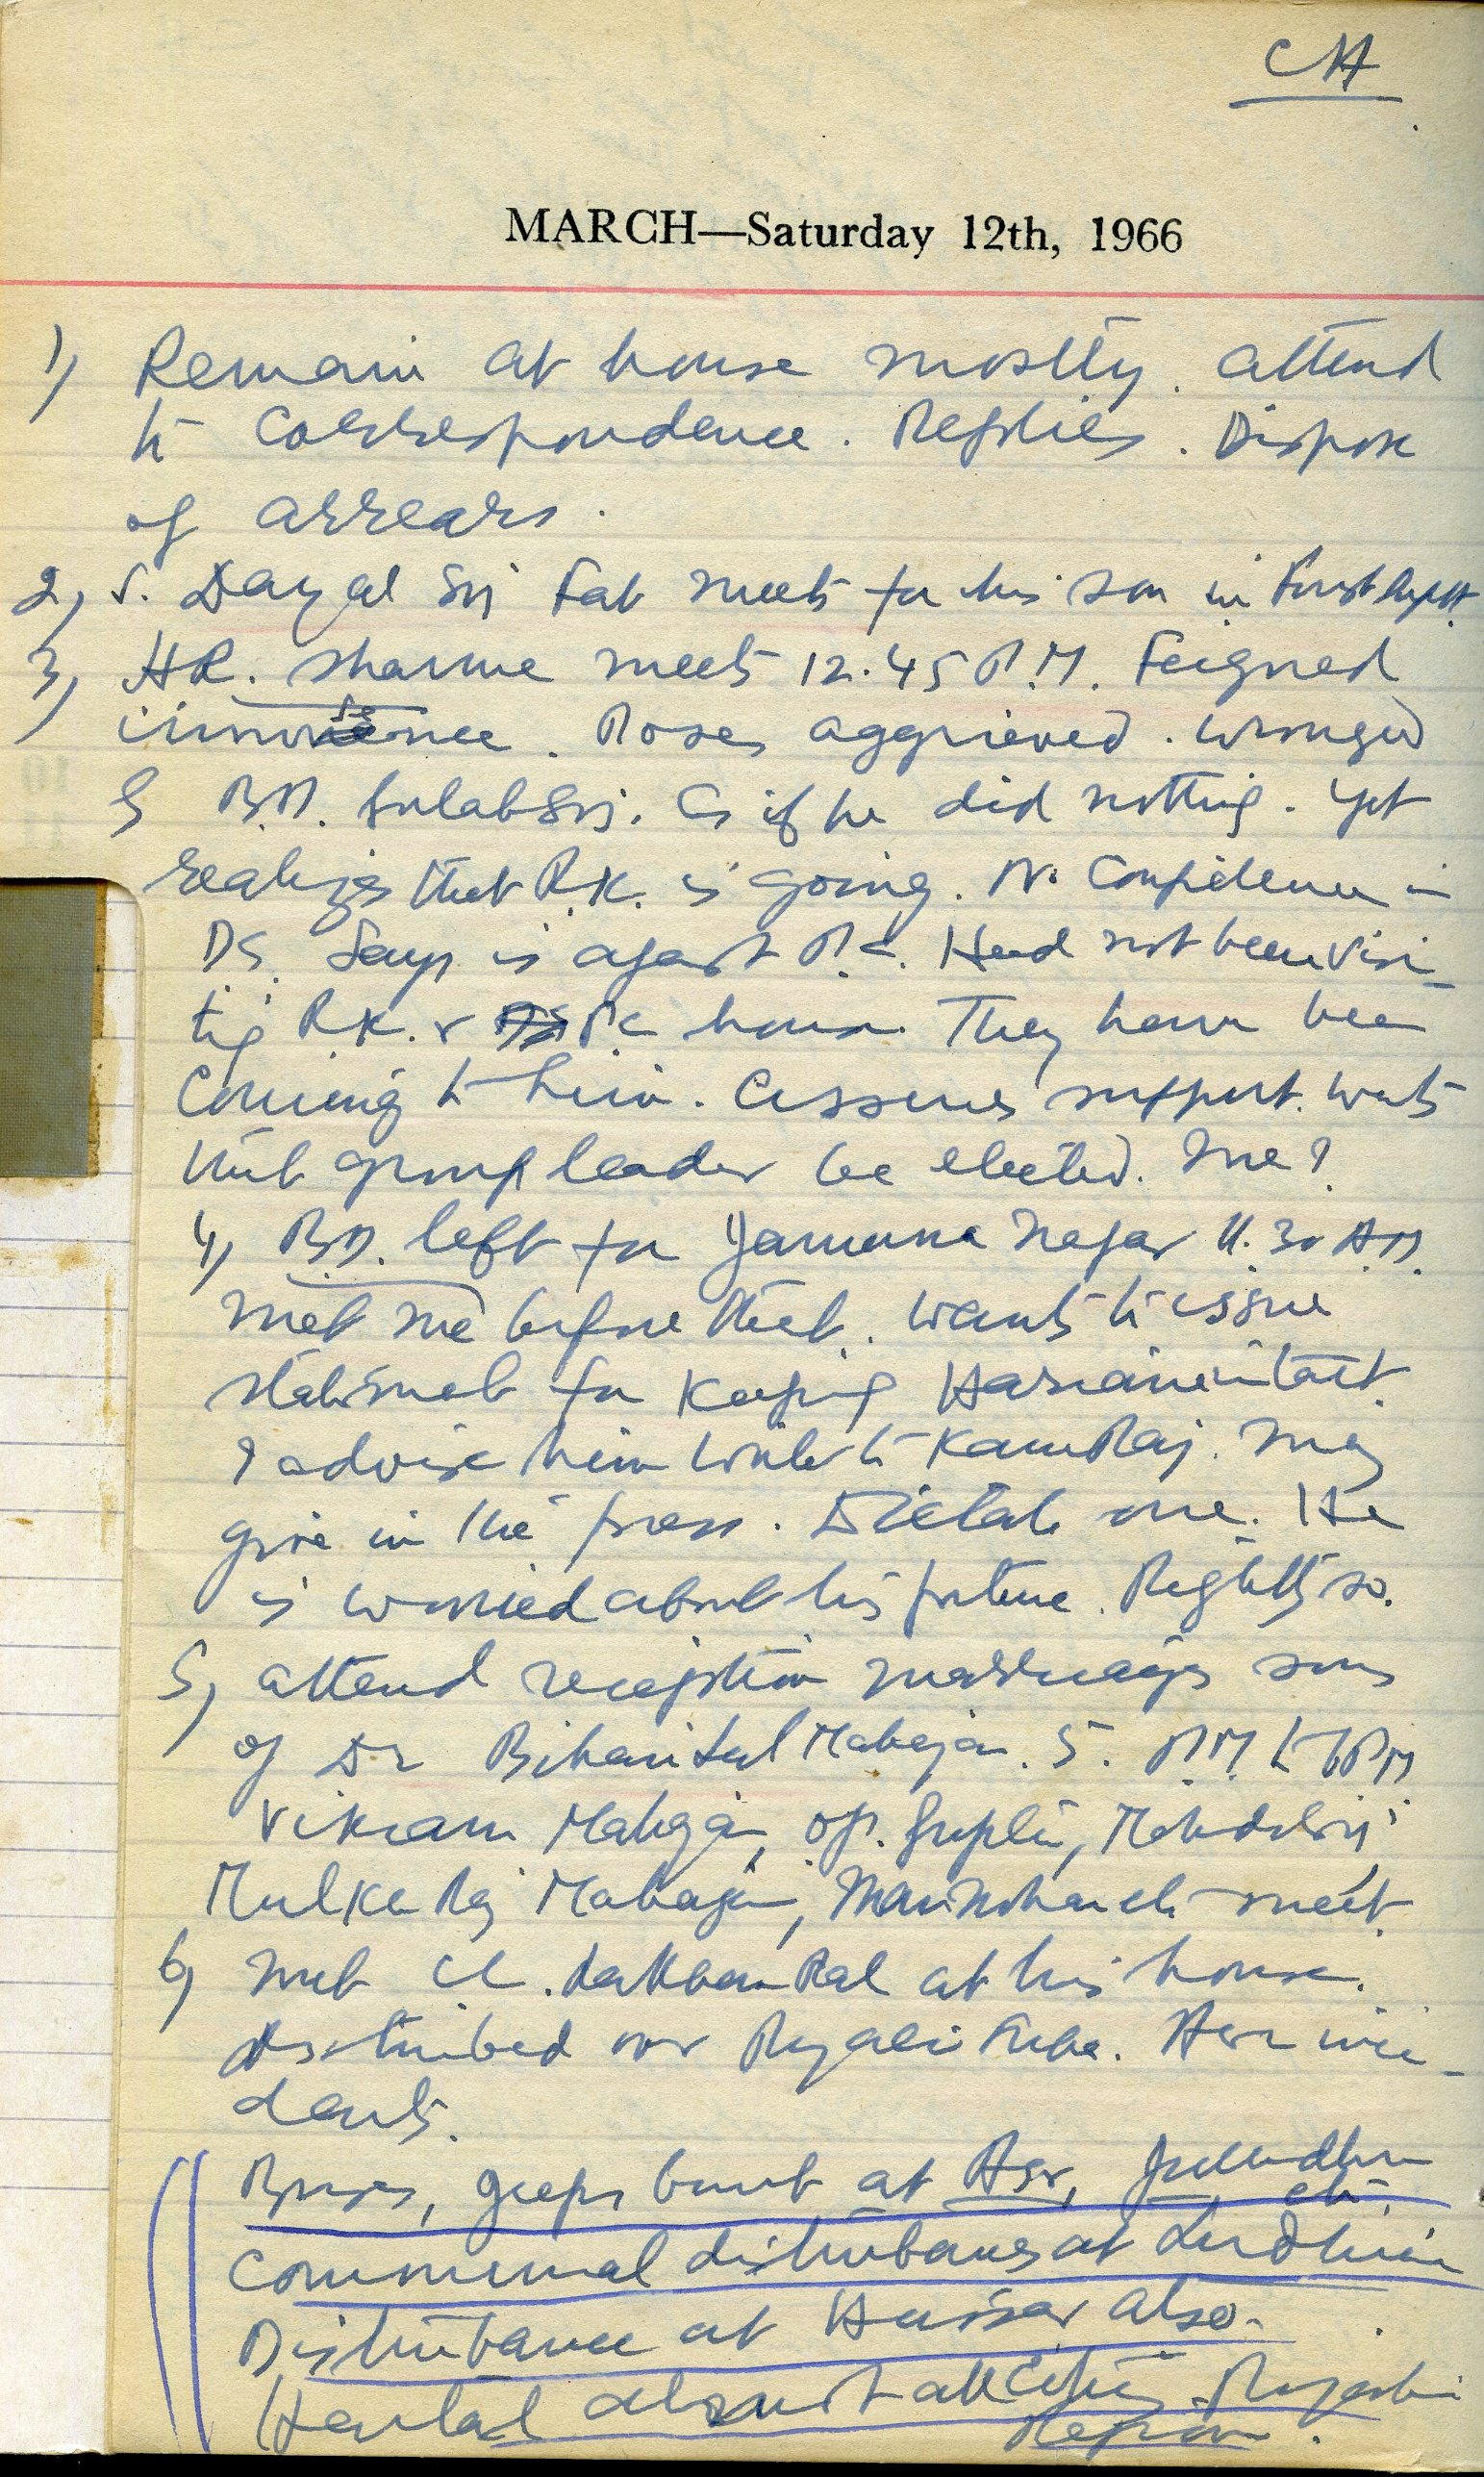 CH
MARCH—Saturday 12th, 1966
1) Remain at house mostly. Attend
to correspondence. Replies. Dispose
of arrears.
2) S. Dayal Sri meets for his son in Forest Deptt.
3) H.R. Sharma meets 12.45 P.M. Feigned
innocence. Poses aggrieved. Wronged
B.D. Gulab Sri. As if he did nothing. Yet
realizes that R.K. is going. No confidence in
D.S. Says is against P.C. Had not been visi-
ting R.K. & P.C. house. They have been
coming to him. Assures support. Wants
that group leader be elected. Me?
4) B.D. left for Jamuna Nagar 11.30 A.M.
Met me before that. Wants to issue
statement for keeping Hariana intact.
I advise him write to KamRaj. May
give in the press. Dictate one. He
is worried about his future. Rightly so.
5) Attend reception marriages sons
of Dr Biharilal Mahajan. 5. P.M. to 7 PM
Vikram Mahajan, OP. Gupta,
Mulkh Raj Mahajan, meet.
6) Met at his house.
Disturbed over Punjabi Suba. Asr inci-
dents.
Buses, jeeps burnt at Asr, Jullundhur etc.
Communal disturbances at Ludhiana
Disturbance at Hissar also.
Hartal almost all cities Punjabi
Region.